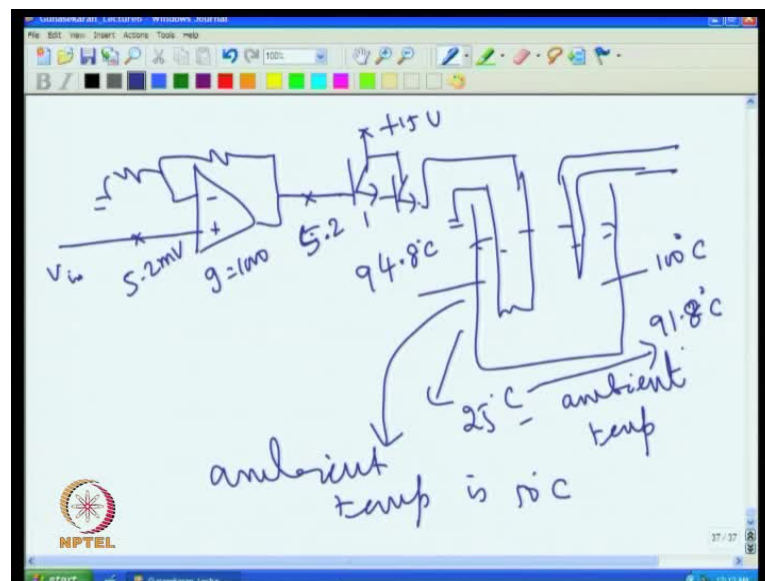 Gunasekaran_Lecture6 - Windows Journal
File Edit View Insert Actions Tools Help
100%
B I
+15 V
-
+
Vin
5.2mV
g=1000
5.2
1
94.8°C
100°C
91.8°C
25°C
ambient
temp
ambient
temp is 50°C
NPTEL
37 / 37
start
10:12 AM